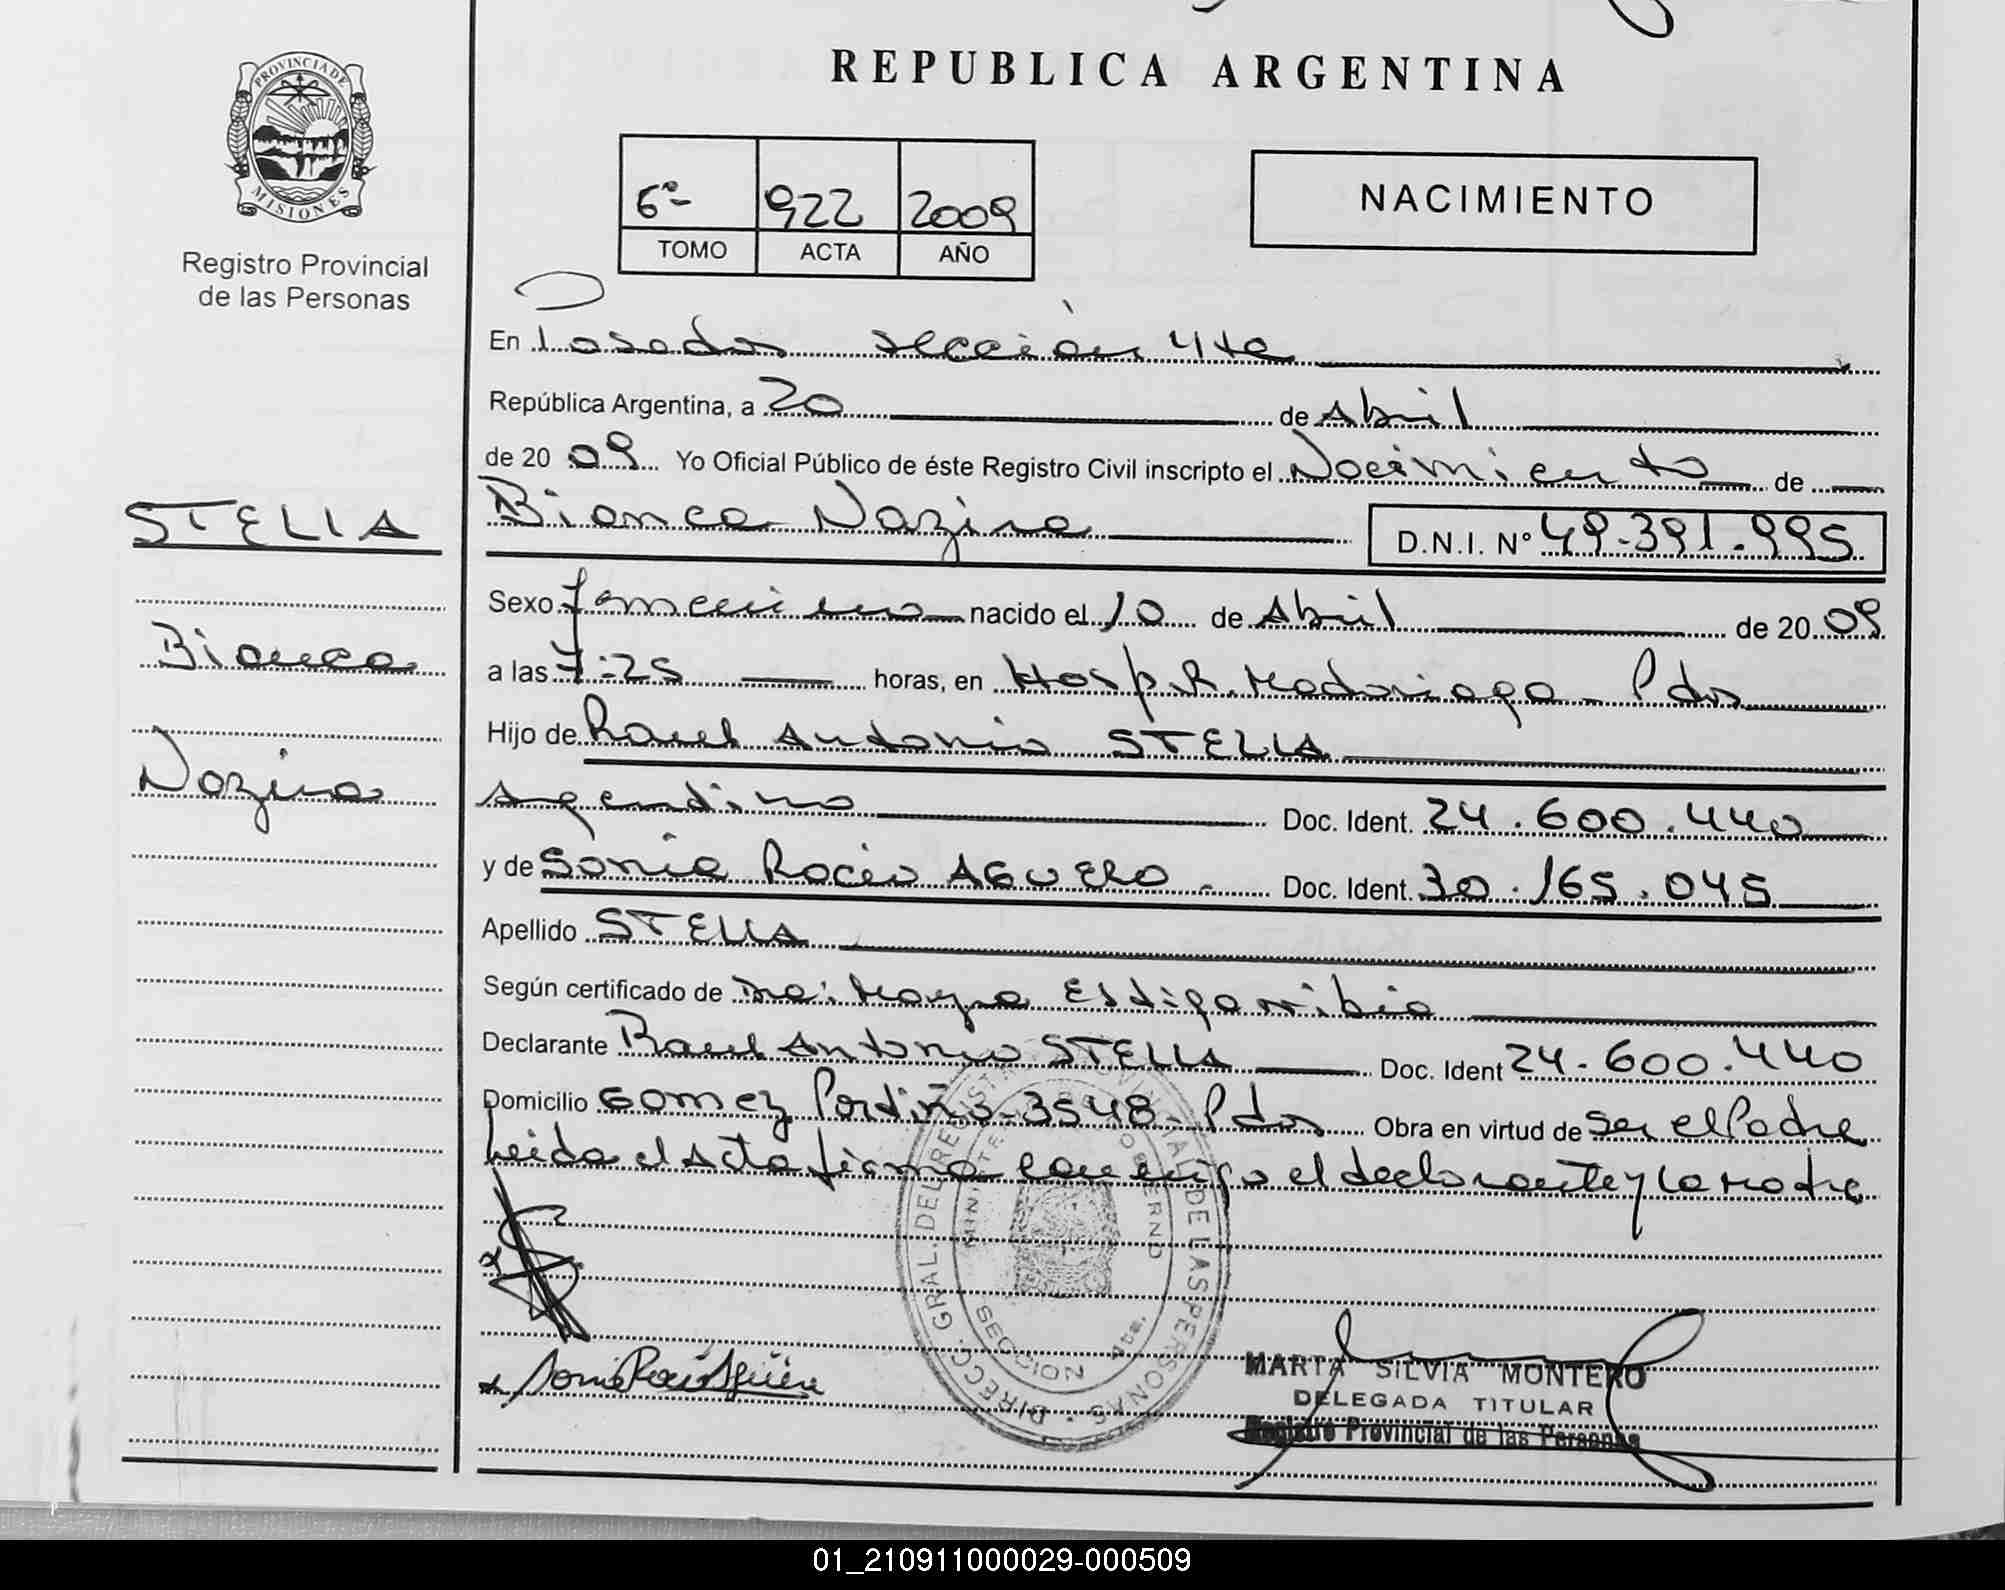 PROVINCIA DE
MISIONES
Registro Provincial
de las Personas
REPUBLICA ARGENTINA
6º- 922 2009
TOMO ACTA AÑO
NACIMIENTO
En Posadas sección 4ta
República Argentina, a 20 de Abril
de 20 09 Yo Oficial Público de éste Registro Civil inscripto el Nacimiento de
Bianca Nazira D.N.I. Nº 49.391.995
Sexo femenino nacido el 10 de Abril de 20 09
a las 7:25 horas, en Hosp. R. Madariaga - Pdas
Hijo de Raul Antonio STELLA
Argentino Doc. Ident. 24.600.440
y de Sonia Rocio AGUERO Doc. Ident. 30.165.045
Apellido STELLA
Según certificado de Dra: Mayra Estigarribia
Declarante Raul Antonio STELLA Doc. Ident 24.600.440
Domicilio Gomez Portiño-3548-Pdas Obra en virtud de ser el Padre
Leida el Acta firma conmigo el declarante y la Madre
STELLA
Bianca
Nazira
DIRECC. GRAL. DEL REGISTRO PROVINCIAL DE LAS PERSONAS
SECCION 4ta.
Sonia Rocio Agüero
MARTA SILVIA MONTERO
DELEGADA TITULAR
Registro Provincial de las Personas
01_210911000029-000509